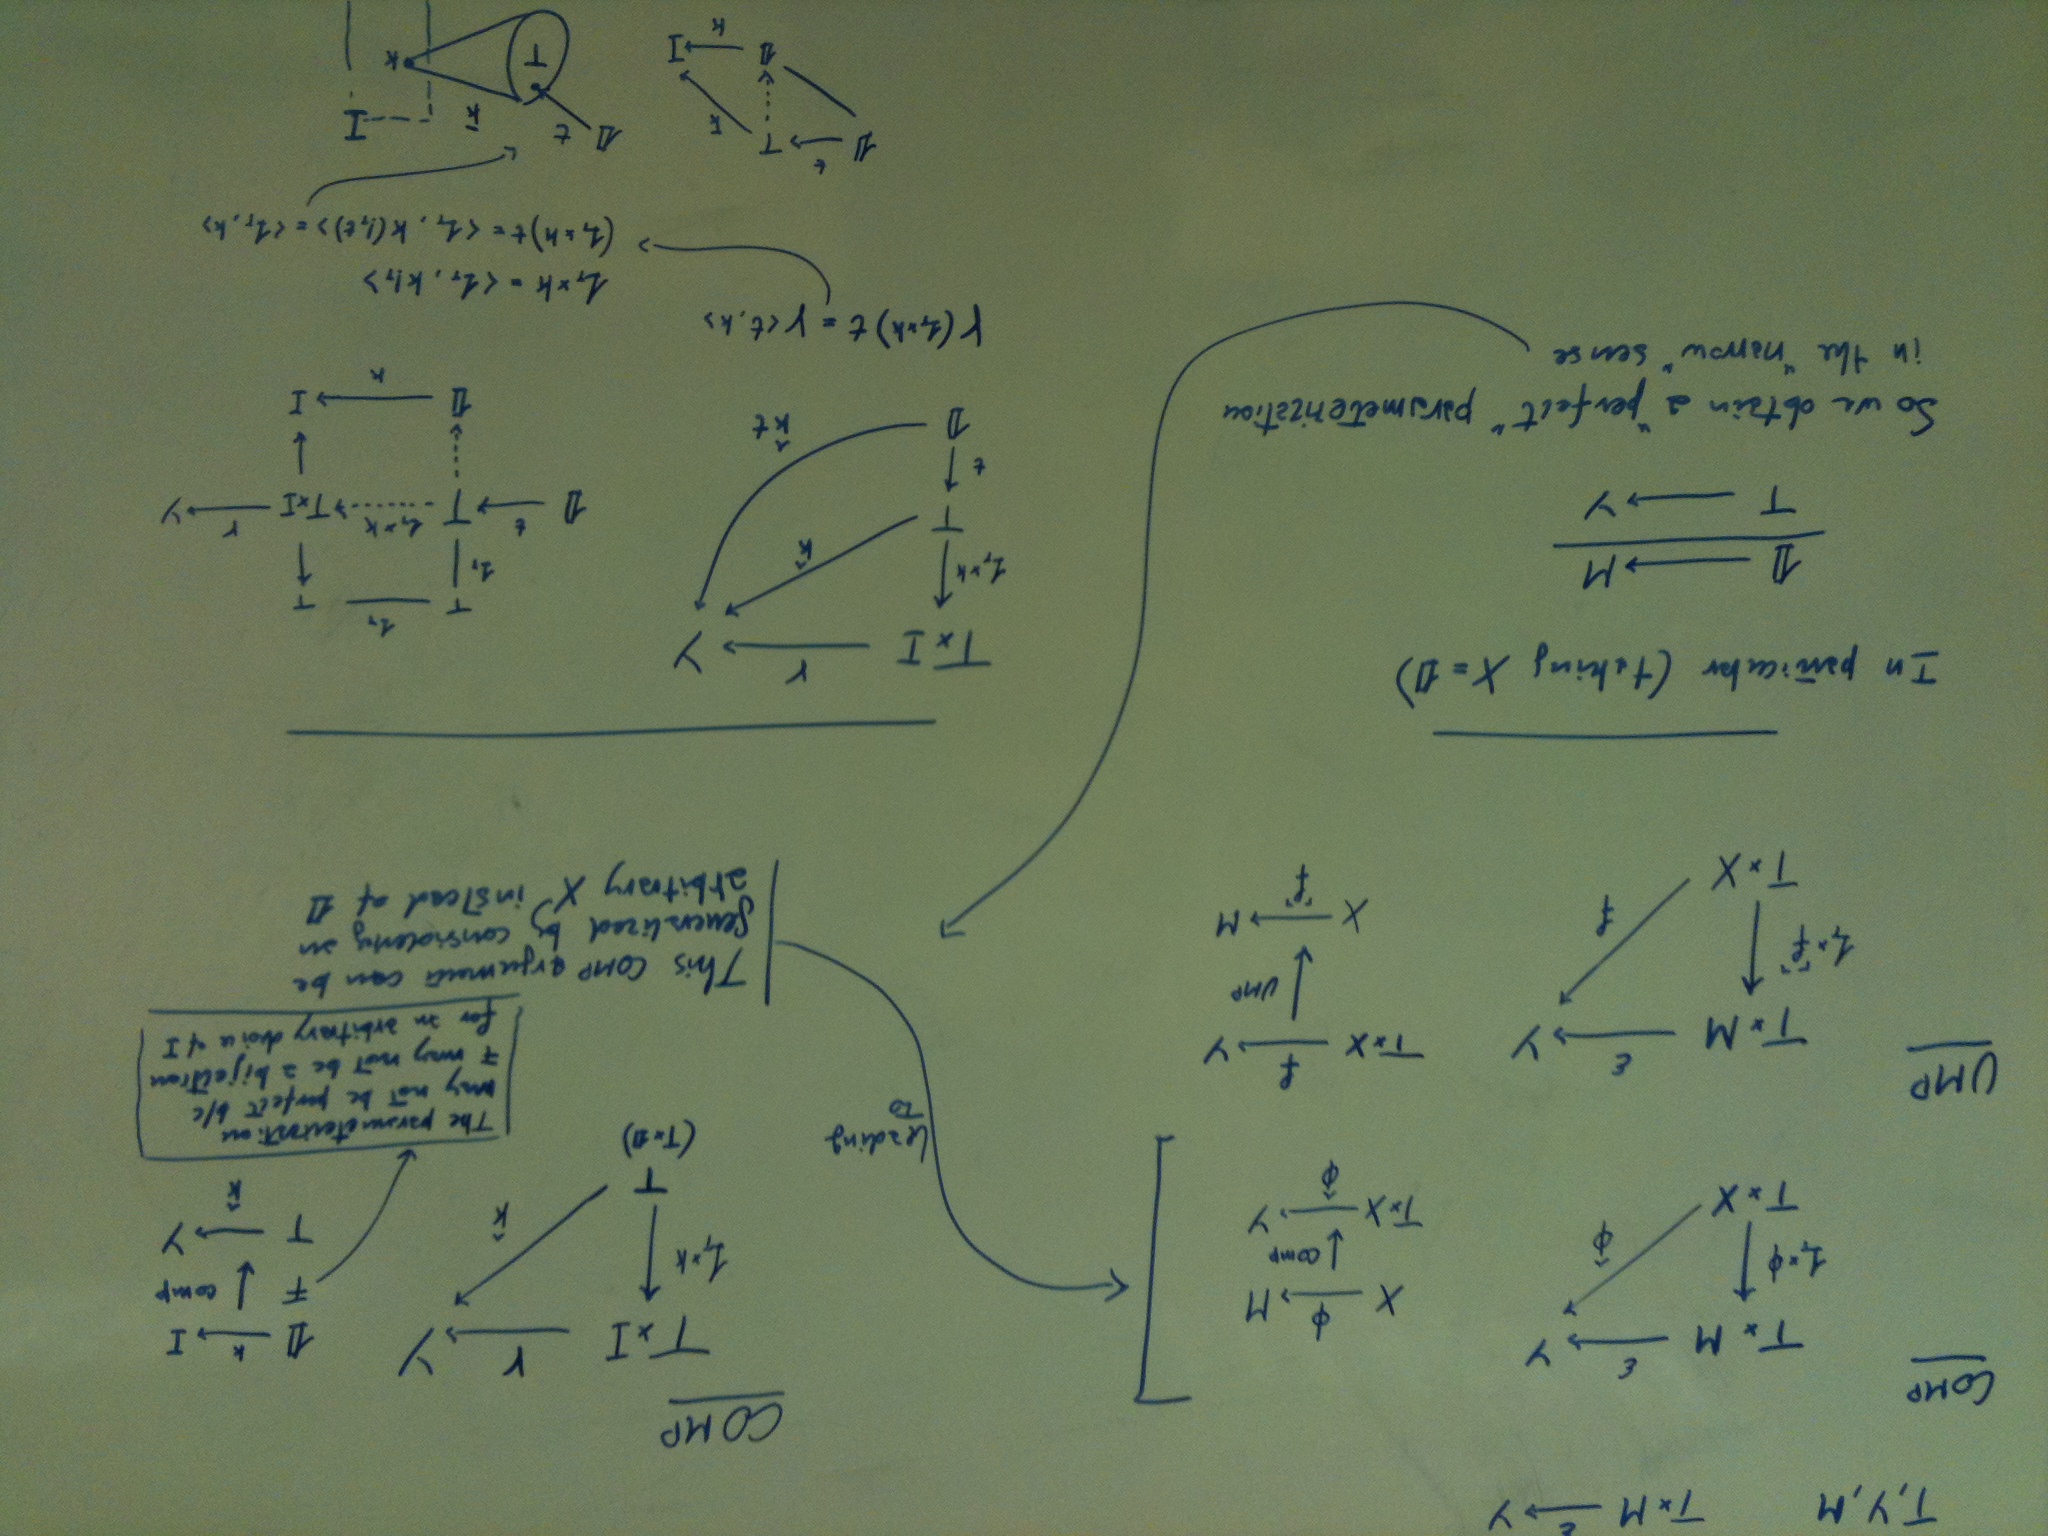 T, Y, M    T×M —ε→ Y
COMP
T×M —ε→ Y
1_T×φ ↑
φ̂
T×X
X —φ→ M
↓ comp
T×X —→ Y
φ̂
UMP
T×M —ε→ Y
1_T×⌜f⌝ ↑
f
T×X
T×X —f→ Y
↓ UMP
X —→ M
⌜f⌝
In particular (taking X = 𝟙)
𝟙 —→ M
T —→ Y
So we obtain a "perfect" parameterization
in the "narrow" sense
leading
to
COMP
T×I —γ→ Y
1_T×k ↑
k̂
T
(T×𝟙)
𝟙 —k→ I
Ŧ ↓ comp
T —→ Y
k̂
The parameterization
may not be perfect b/c
Ŧ may not be a bijection
for an arbitrary choice of I
This COMP argument can be
generalized by considering an
arbitrary X instead of 𝟙
T×I —γ→ Y
1_T×k ↑
k̂
T
t ↑
𝟙
k̂t
T —1_T— T
1_T
𝟙 —t→ T -1_T×k-> T×I —γ→ Y
𝟙 —→ I
k
γ(1_T×k)t = γ<t, k>
1_T×k = <1_T, k!_T>
(1_T×k)t = <1_T, k(!_T t)> = <1_T, k>
𝟙 —t→ T
k̄
𝟙 —→ I
k
𝟙 t
k̄
I
T
k